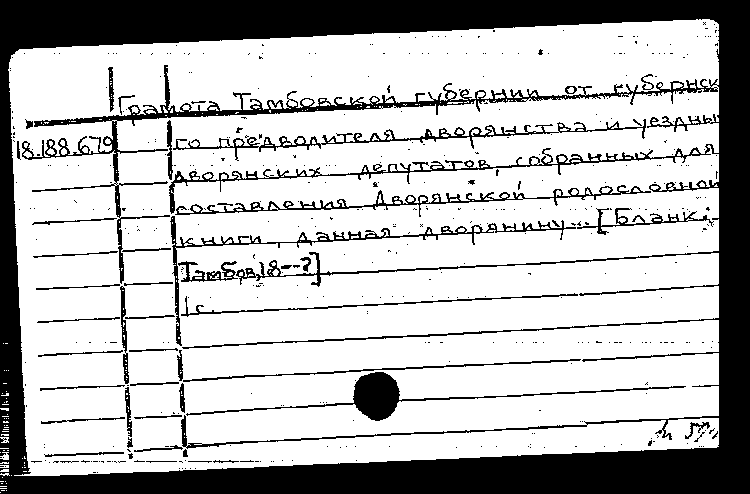 Грамота Тамбовской губернии от губернск
18.188.679 го предводителя дворянства и уездны
дворянских депутатов, собранных для
составления Дворянской родословной
книги, данная дворянину... [Бланк.
Тамбов, 18--?].
1 с.